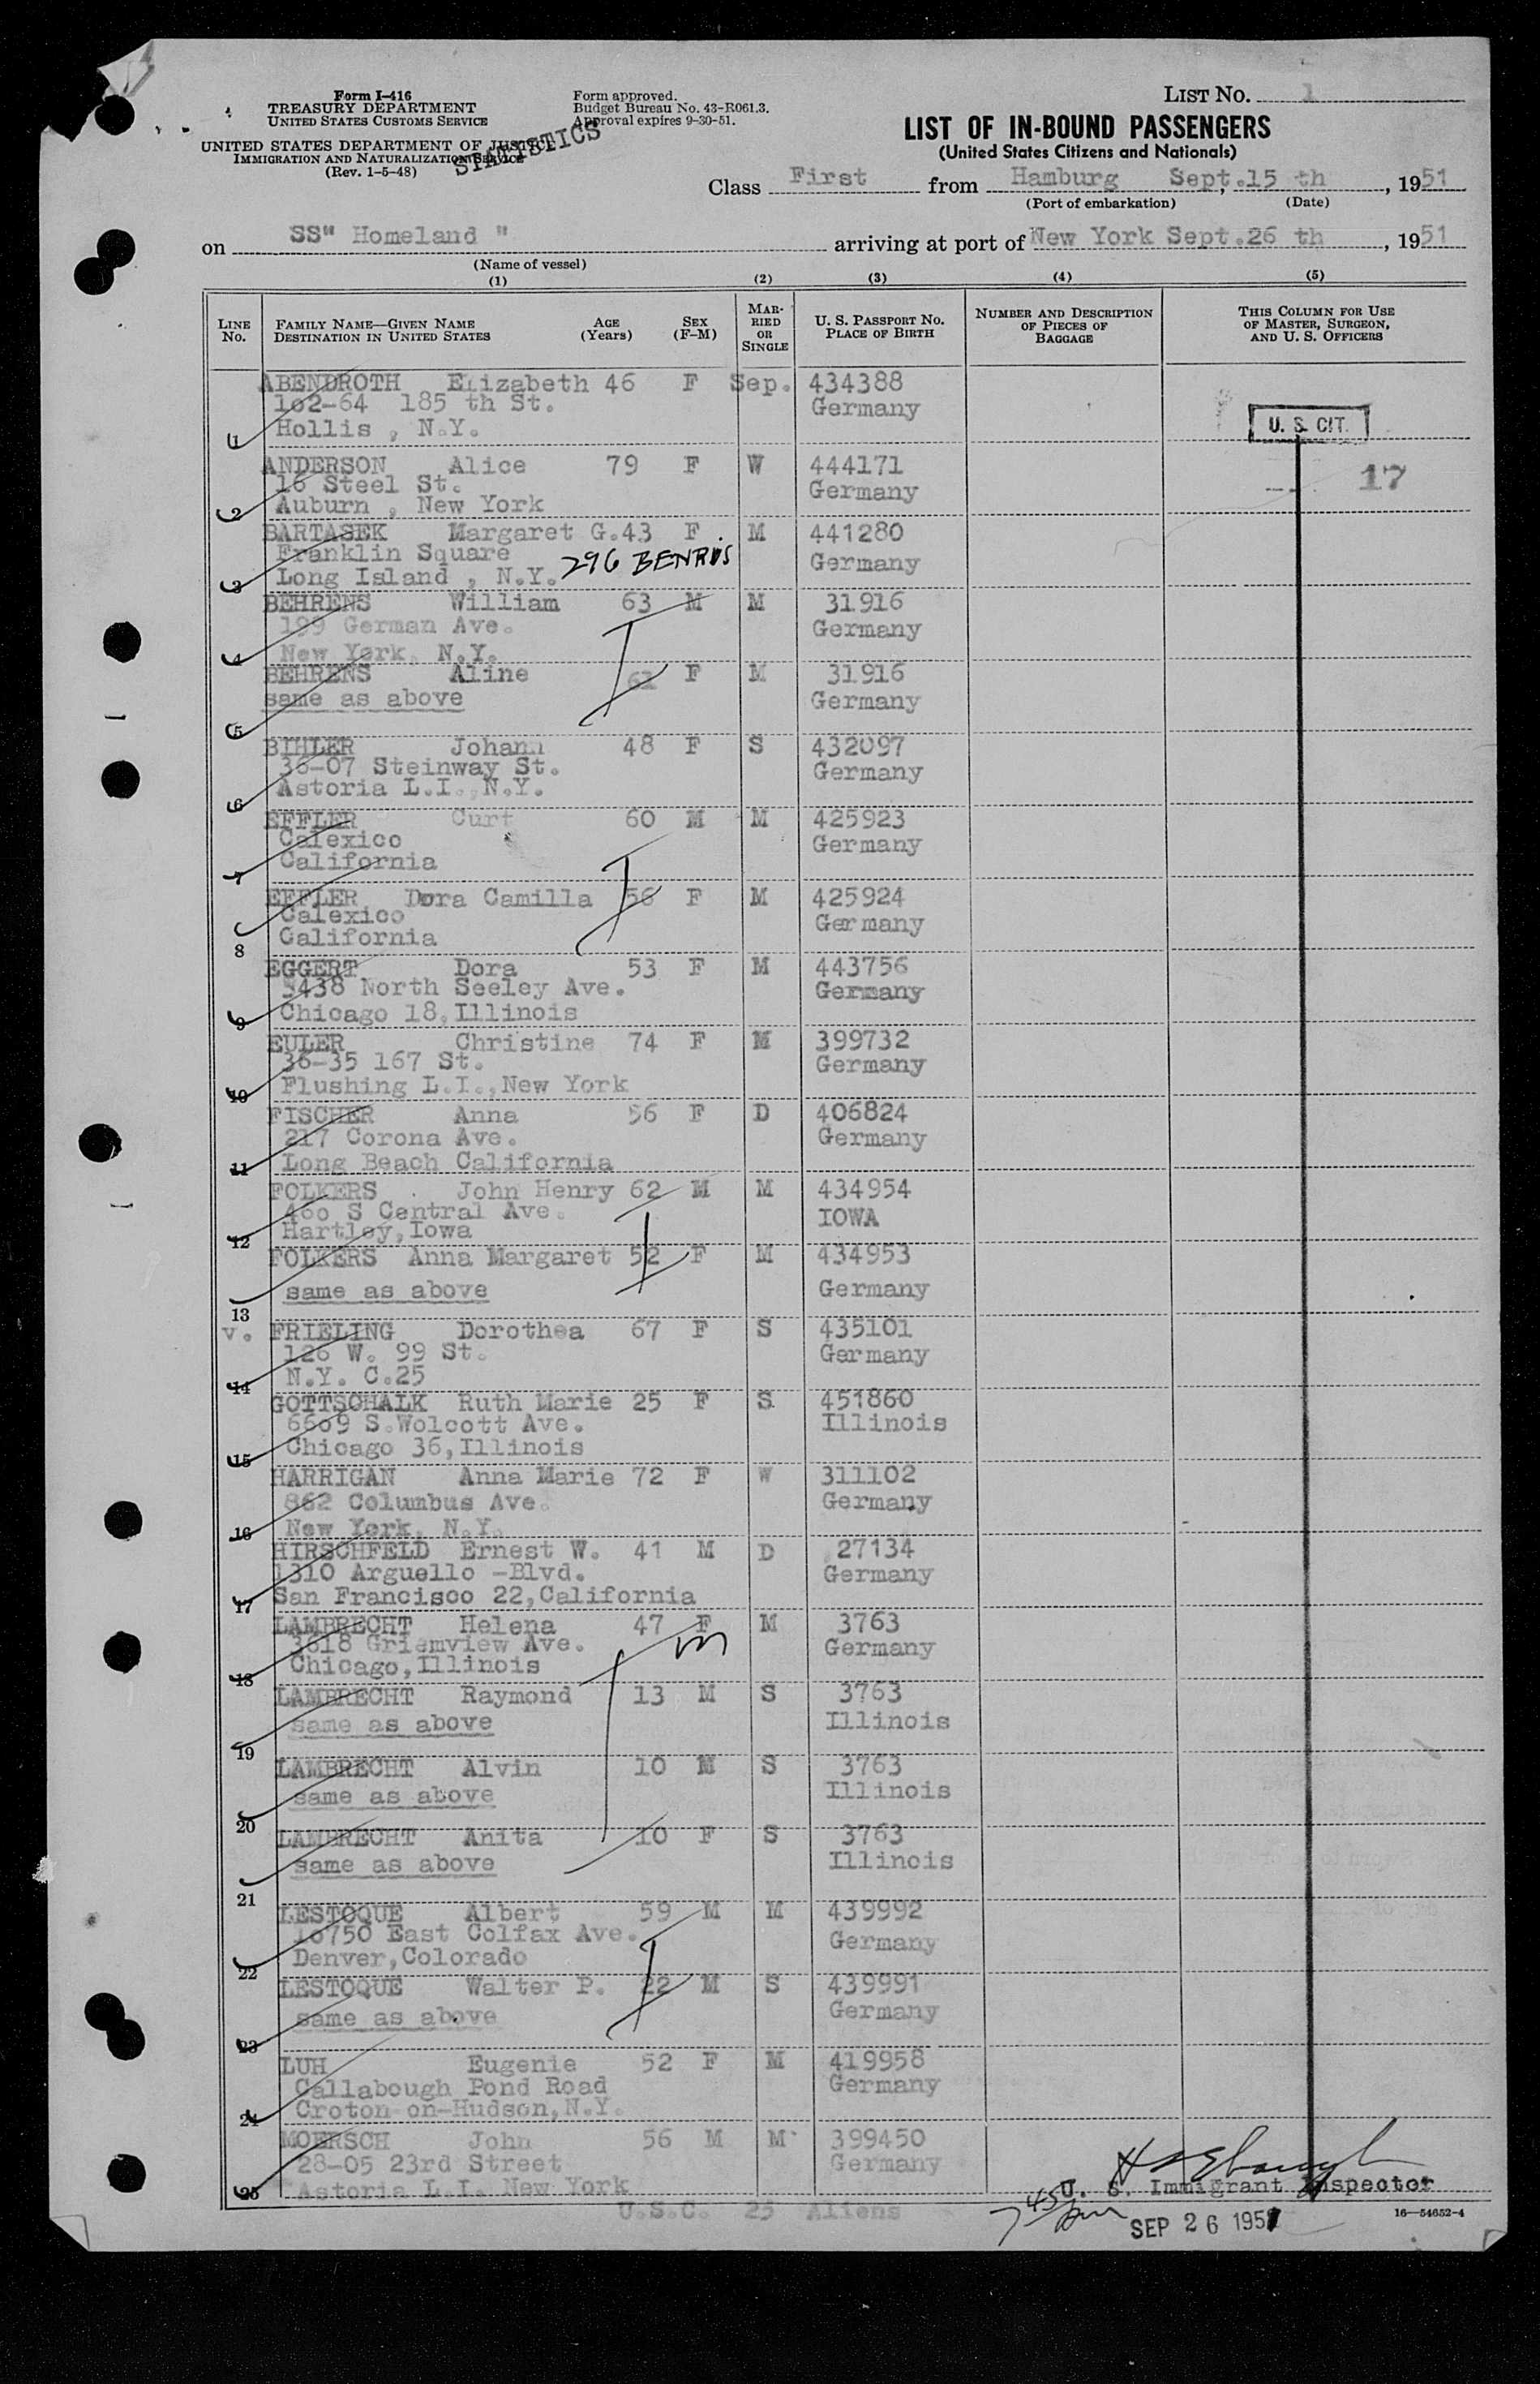 LIST No. 1
Form I-416
TREASURY DEPARTMENT
UNITED STATES CUSTOMS SERVICE
UNITED STATES DEPARTMENT OF JUSTICE
IMMIGRATION AND NATURALIZATION SERVICE
(Rev. 1-5-48)
STATISTICS
Form approved.
Budget Bureau No. 43-R061.3.
Approval expires 9-30-51.
LIST OF IN-BOUND PASSENGERS
(United States Citizens and Nationals)
Class First from Hamburg , Sept.15 th , 1951
(Port of embarkation) (Date)
on SS" Homeland " arriving at port of New York Sept.26 th , 1951
(Name of vessel)
(1) (2) (3) (4) (5)
LINE No. FAMILY NAME—GIVEN NAME DESTINATION IN UNITED STATES AGE (Years) SEX (F-M) MARRIED OR SINGLE U. S. PASSPORT No. PLACE OF BIRTH NUMBER AND DESCRIPTION OF PIECES OF BAGGAGE THIS COLUMN FOR USE OF MASTER, SURGEON, AND U. S. OFFICERS
ABENDROTH Elizabeth 46 F Sep. 434388
102-64 185 th St. Germany
1 Hollis , N.Y. U. S. CIT.
ANDERSON Alice 79 F W 444171 17
16 Steel St. Germany
2 Auburn , New York
BARTASEK Margaret G. 43 F M 441280
Franklin Square Germany
3 Long Island , N.Y. 296 BENRIS
BEHRENS William 63 M M 31916
199 German Ave. Germany
4 New York, N.Y.
BEHRENS Aline 61 F M 31916
same as above Germany
5
BIHLER Johann 48 F S 432097
36-07 Steinway St. Germany
6 Astoria L.I., N.Y.
EFFLER Curt 60 M M 425923
Calexico Germany
7 California
EFFLER Dora Camilla 56 F M 425924
Calexico Germany
8 California
EGGERT Dora 53 F M 443756
5438 North Seeley Ave. Germany
9 Chicago 18, Illinois
EULER Christine 74 F M 399732
36-35 167 St. Germany
10 Flushing L.I., New York
FISCHER Anna 56 F D 406824
217 Corona Ave. Germany
11 Long Beach California
FOLKERS John Henry 62 M M 434954
460 S Central Ave. IOWA
12 Hartley, Iowa
FOLKERS Anna Margaret 52 F M 434953
same as above Germany
13
v. FRIELING Dorothea 67 F S 435101
126 W. 99 St. Germany
14 N.Y. C.25
GOTTSCHALK Ruth Marie 25 F S 451860
6609 S.Wolcott Ave. Illinois
15 Chicago 36, Illinois
HARRIGAN Anna Marie 72 F W 311102
862 Columbus Ave. Germany
16 New York, N.Y.
HIRSCHFELD Ernest W. 41 M D 27134
1310 Arguello -Blvd. Germany
17 San Francisco 22, California
LAMBRECHT Helena 47 F M 3763
3618 Griemview Ave. m Germany
18 Chicago, Illinois
LAMBRECHT Raymond 13 M S 3763
same as above Illinois
19
LAMBRECHT Alvin 10 M S 3763
same as above Illinois
20
LAMBRECHT Anita 10 F S 3763
same as above Illinois
21
LESTOQUE Albert 59 M M 439992
16750 East Colfax Ave. Germany
22 Denver, Colorado
LESTOQUE Walter P. 22 M S 439991
same as above Germany
23
LUH Eugenie 52 F M 419958
Callabough Pond Road Germany
24 Croton-on-Hudson, N.Y.
MOERSCH John 56 M M 399450
28-05 23rd Street Germany
25 Astoria L.I. New York
U. S. Immigrant Inspector
U.S.C. 25 Aliens
7 45 pm SEP 26 1951
16—54652-4